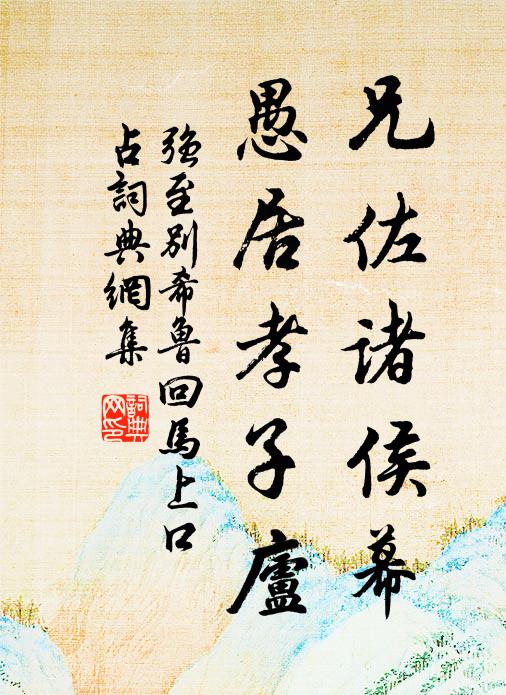 兄佐诸侯幕
愚居孝子廬
强至别希魯回馬上口
占詞典網集
詞典
网印